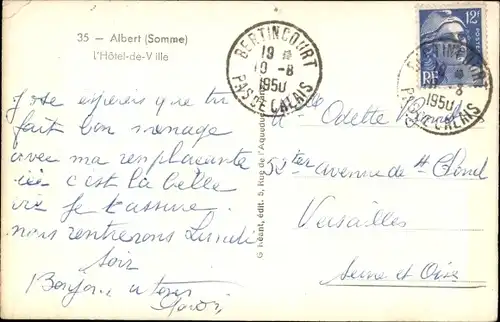 35 — Albert (Somme)
L'Hôtel-de-Ville
J'ose espérer que tu
fait bon menage
avec ma remplaçante
ici c'est la belle
vie je t'assure.
nous rentrerons Lundi
soir
Bonjour a tous
G. Réant, édit. 5, Rue de l'Aqueduc
BERTINCOURT
19 *
19 -8
1950
PAS DE CALAIS
12F
POSTES
RF
BERTINCOURT
1950
PAS DE CALAIS
Mlle Odette
52ter avenue de St Cloud
Versailles
Seine et Oise